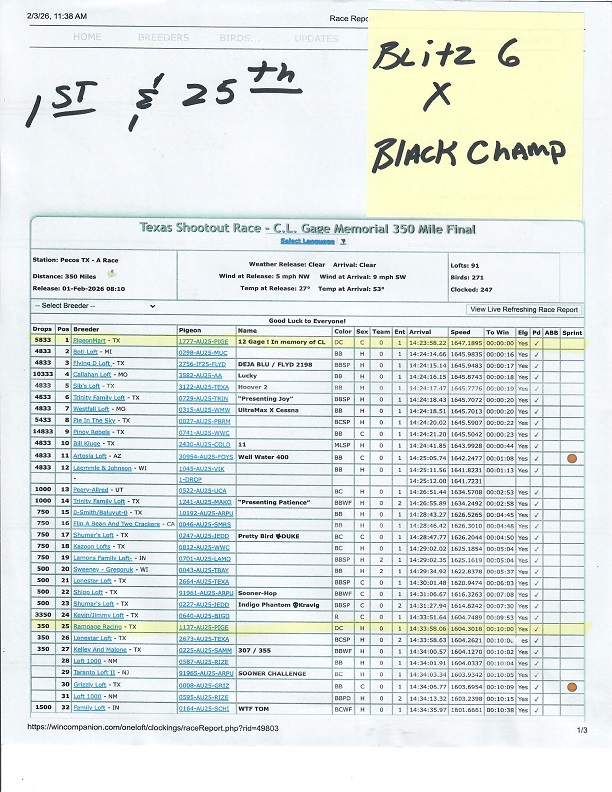 2/3/26, 11:38 AM Race Repo
HOME BREEDERS BIRDS... UPDATES
1ST & 25th
BLitz 6
X
BLACK CHAMP
Texas Shootout Race - C.L. Gage Memorial 350 Mile Final
Select Language ▼
Station: Pecos TX - A Race
Distance: 350 Miles
Release: 01-Feb-2026 08:10
Weather Release: Clear Arrival: Clear
Wind at Release: 5 mph NW Wind at Arrival: 9 mph SW
Temp at Release: 27° Temp at Arrival: 53°
Lofts: 91
Birds: 271
Clocked: 247
-- Select Breeder --
View Live Refreshing Race Report
Good Luck to Everyone!
Drops Pos Breeder Pigeon Name Color Sex Team Ent Arrival Speed To Win Elg Pd ABB Sprint
5833 1 PigeonHart - TX 1777-AU25-PIGE 12 Gage ! In memory of CL DC C 0 1 14:23:58.22 1647.1895 00:00:00 Yes ✓
4833 2 Boti Loft - MI 0298-AU25-MUC BB H 0 1 14:24:14.66 1645.9835 00:00:16 Yes ✓
4833 3 Flying D Loft - TX 2756-IF25-FLYD DEJA BLU / FLYD 2198 BBSP H 0 1 14:24:15.14 1645.9483 00:00:17 Yes ✓
10333 4 Callahan Loft - MO 3582-AU25-AA Lucky BB H 0 1 14:24:16.15 1645.8743 00:00:18 Yes ✓
4833 5 Sib's Loft - TX 3122-AU25-TEXA Hoover 2 BB H 0 1 14:24:17.47 1645.7776 00:00:19 Yes ✓
4833 6 Trinity Family Loft - TX 0729-AU25-TRIN "Presenting Joy" BBSP H 0 1 14:24:18.43 1645.7072 00:00:20 Yes ✓
4833 7 Westfall Loft - MO 0315-AU25-WMW UltraMax X Cessna BB H 0 1 14:24:18.51 1645.7013 00:00:20 Yes ✓
5433 8 Pie In The Sky - TX 0027-AU25-PBRM BCSP H 0 1 14:24:20.02 1645.5907 00:00:22 Yes ✓
14833 9 Pinoy Rebels - TX 0741-AU25-WWC BB C 0 1 14:24:21.20 1645.5042 00:00:23 Yes ✓
4833 10 Bill Kluge - TX 2430-AU25-COLD 11 MLSP H 0 1 14:24:41.85 1643.9928 00:00:44 Yes ✓
4833 11 Artesia Loft - AZ 30954-AU25-FOYS Well Water 400 BB C 0 1 14:25:05.74 1642.2477 00:01:08 Yes ✓
4833 12 Leemmle & Johnson - WI 1045-AU25-VIK BB H 0 1 14:25:11.56 1641.8231 00:01:13 Yes ✓
- 1-DROP 14:25:12.00 1641.7231
1000 13 Peery-Allred - UT 0522-AU25-UCA BC H 0 1 14:26:51.44 1634.5708 00:02:53 Yes ✓
1000 14 Trinity Family Loft - TX 1241-AU25-MAKO "Presenting Patience" BBWF H 0 2 14:26:55.89 1634.2492 00:02:58 Yes ✓
750 15 D-Smith/Baluyut-G - TX 10192-AU25-ARPU BB H 0 1 14:28:43.27 1626.5265 00:04:45 Yes ✓
750 16 Flip A Bean And Two Crackers - CA 0046-AU25-SMRS BB H 0 1 14:28:46.42 1626.3010 00:04:48 Yes ✓
750 17 Shumar's Loft - TX 0247-AU25-JEDD Pretty Bird DUKE BC C 0 1 14:28:47.77 1626.2044 00:04:50 Yes ✓
750 18 Kazoon Lofts - TX 0812-AU25-WWC BC H 0 1 14:29:02.02 1625.1854 00:05:04 Yes ✓
750 19 Lamors Family Loft- - IN 0701-AU25-LAMO BBSP H 2 1 14:29:02.35 1625.1619 00:05:04 Yes ✓
500 20 Sweeney - Gregoruk - WI 0043-AU25-TBAY BB H 0 2 14:29:34.92 1622.8378 00:05:37 Yes ✓
500 21 Lonestar Loft - TX 2664-AU25-TEXA BBSP C 0 1 14:30:01.48 1620.9474 00:06:03 Yes ✓
500 22 Shigo Loft - TX 91961-AU25-ARPU Sooner-Hop BBWF C 0 1 14:31:06.67 1616.3263 00:07:08 Yes ✓
500 23 Shumar's Loft - TX 0227-AU25-JEDD Indigo Phantom Kravig BBSP C 0 2 14:31:27.94 1614.8242 00:07:30 Yes ✓
3350 24 Kevin/Jimmy Loft - TX 0640-AU25-BIGD R C 0 1 14:33:51.64 1604.7489 00:09:53 Yes ✓
350 25 Rampage Racing - TX 1137-AU25-PIGE DC H 0 1 14:33:58.06 1604.3018 00:10:00 Yes ✓
350 26 Lonestar Loft - TX 2673-AU25-TEXA BCSP H 0 2 14:33:58.63 1604.2621 00:10:0 es ✓
350 27 Kelley And Malone - TX 0225-AU25-SAMM 307 / 355 BBWF H 0 1 14:34:00.57 1604.1270 00:10:02 Yes ✓
28 Loft 1000 - NM 0587-AU25-RIZE BB H 0 1 14:34:01.91 1604.0337 00:10:04 Yes ✓
29 Taranto Loft II - NJ 91965-AU25-ARPU SOONER CHALLENGE BC H 0 1 14:34:03.34 1603.9342 00:10:05 Yes ✓
30 Grizzly Loft - TX 0008-AU25-GRIZ BB C 0 1 14:34:06.77 1603.6954 00:10:09 Yes ✓
31 Loft 1000 - NM 0595-AU25-RIZE BBPD H 0 2 14:34:13.32 1603.2398 00:10:15 Yes ✓
1500 32 Family Loft - IN 0164-AU25-SCHI WTF TOM BCWF H 0 1 14:34:35.97 1601.6661 00:10:38 Yes ✓
https://wincompanion.com/oneloft/clockings/raceReport.php?rid=49803 1/3